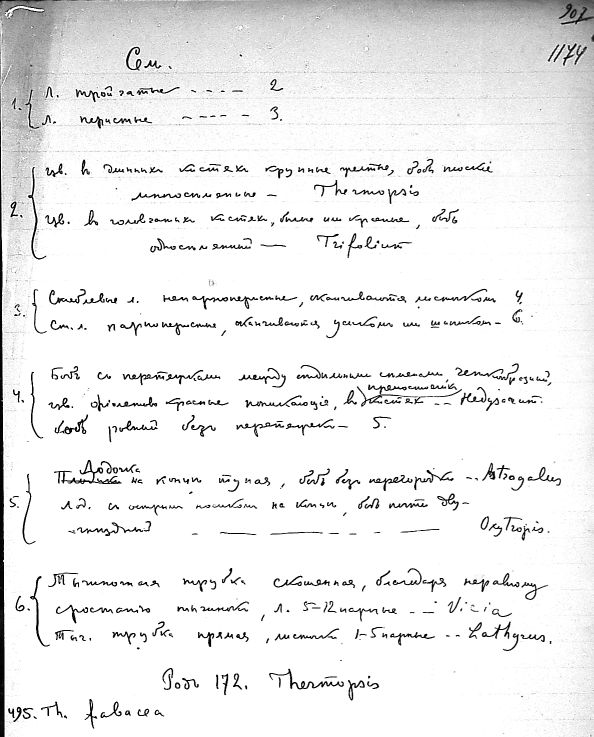 907
1174
Сем.
1. Л. тройчатые - - - - 2
Л. перистые - - - - - 3.
2. цв. в длинных кистях крупные желтые, бобъ плоский
многосеменные - Thermopsis
цв. въ головчатых кистях, белые или красные, бобъ
односеменный — Trifolium
3. Стеблевые л. непарноперистые, оканчиваются листиком 4.
Ст. л. парноперистые, оканчиваются усиком или шипиком - 6.
4. Бобъ съ перетяжками между отдельными семенами, четкобразный,
цв. фiолетово красные поникающiе, въ прямостоячих кистях --
бобъ ровный безъ перетяжек - 5.
5. Лодочка на конце тупая, бобъ безъ перегородки -- Astragalus
Лод. съ острым носиком на конце, боб почти дву-
гнездный - — — — - — Oxytropis.
6. Тычиночная трубка скошенная, благодаря неравному
сростанию тычинок, л. 5-12 парные - - Vicia
Тыч. трубка прямая, листики 1-5 парные -- Lathyrus.
Родъ 172. Thermopsis
495. Th. fabacea